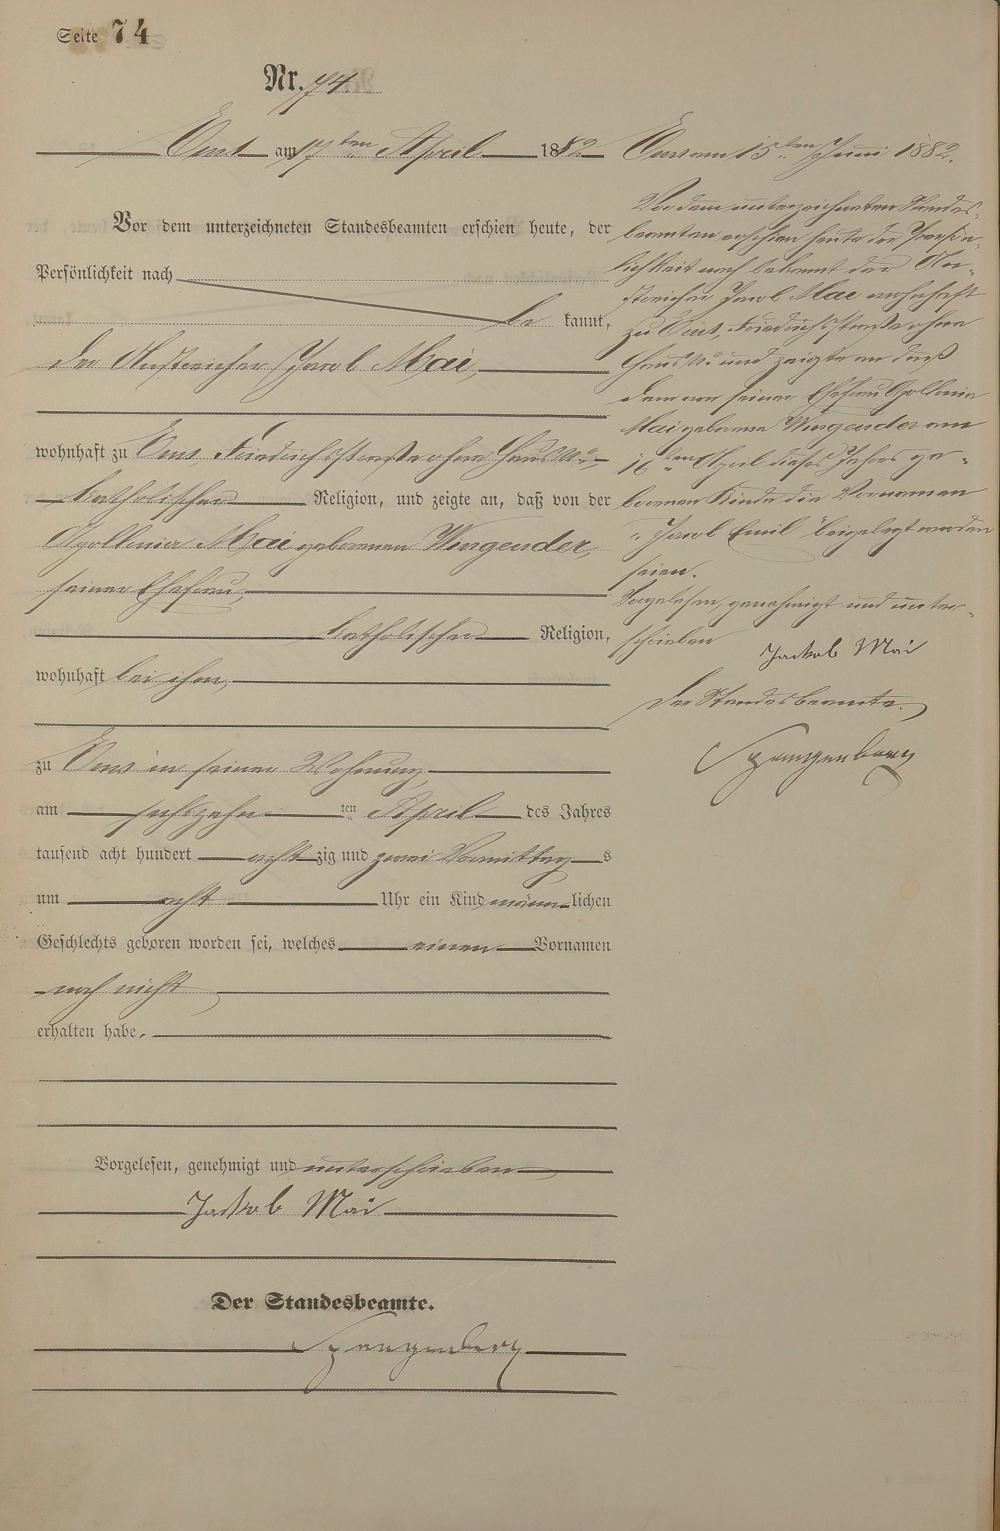 Seite 74
Nr. 74.
Ems am 17ten April 1882
Vor dem unterzeichneten Standesbeamten erschien heute, der
Persönlichkeit nach
be kannt,
der Anstreicher Jacob Mai,
wohnhaft zu Ems, Friedrichsstraße ohne Haus No
katholischer Religion, und zeigte an, daß von der
Apollonia Mai geborenen Wingender,
seiner Ehefrau,
katholischer Religion,
wohnhaft bei ihm,
zu Ems in seiner Wohnung
am sechszehn ten April des Jahres
tausend acht hundert acht zig und zwei Vormittag s
um acht Uhr ein Kind männ lichen
Geschlechts geboren worden sei, welches einen Vornamen
noch nicht
erhalten habe.
Vorgelesen, genehmigt und unterschrieben
Jackob Mai
Der Standesbeamte.
Spangenberg
Ems am 15ten Juni 1882.
Vor dem unterzeichneten Standes-
beamten erschien heute der Persön-
lichkeit nach bekannt der An-
streicher Jacob Mai wohnhaft
zu Ems, Friedrichsstraße ohne
Haus No und zeigte an daß
dem von seiner Ehefrau Apollonia
Mai geborene Wingender am
16ten April dieses Jahres ge-
borenen Kinde die Vornamen
"Jacob Emil" beigelegt worden
seien.
Vorgelesen, genehmigt und unter-
schrieben
Jackob Mai
Der Standesbeamte.
Spangenberg